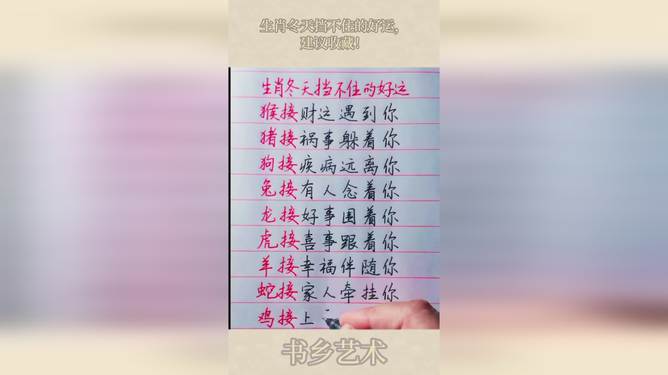 生肖冬天挡不住的好运,
建议收藏!
生肖冬天挡不住的好运
猴接财运遇到你
猪接祸事躲着你
狗接疾病远离你
兔接有人念着你
龙接好事围着你
虎接喜事跟着你
羊接幸福伴随你
蛇接家人牵挂你
鸡接上
书乡艺术